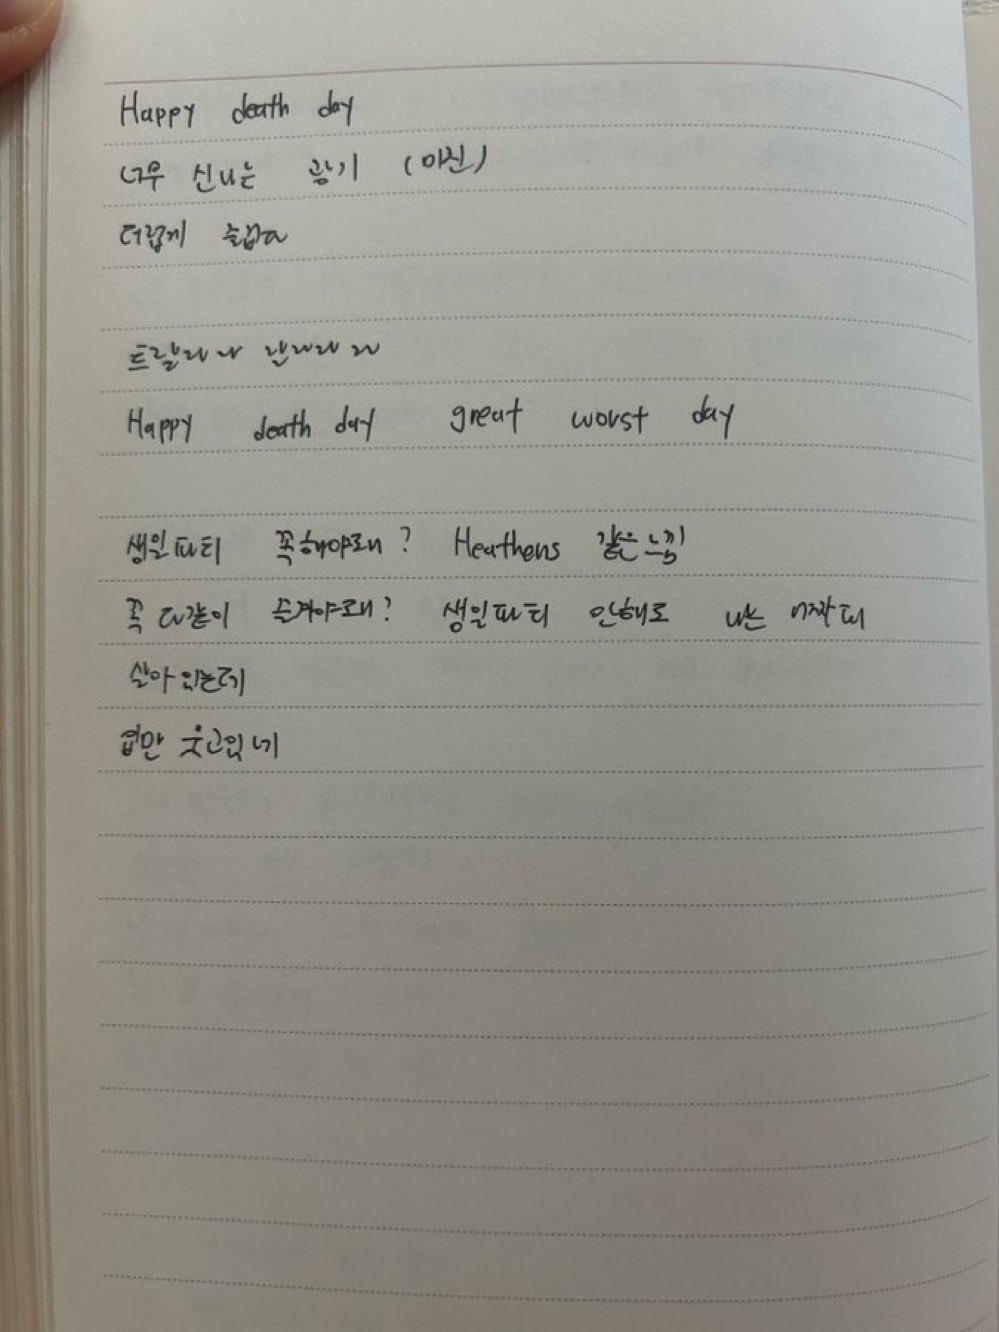 Happy death day
너무 신나는 광기 (미친)
더럽게 슬랍다
트랄라 라 란라라라 라
Happy death day great worst day
생일파티 꼭해야돼? Heathens 같은 느낌
꼭 다같이 즐겨야돼? 생일파티 안해도 나는 어짜피
살아 있는데
입만 웃고있네